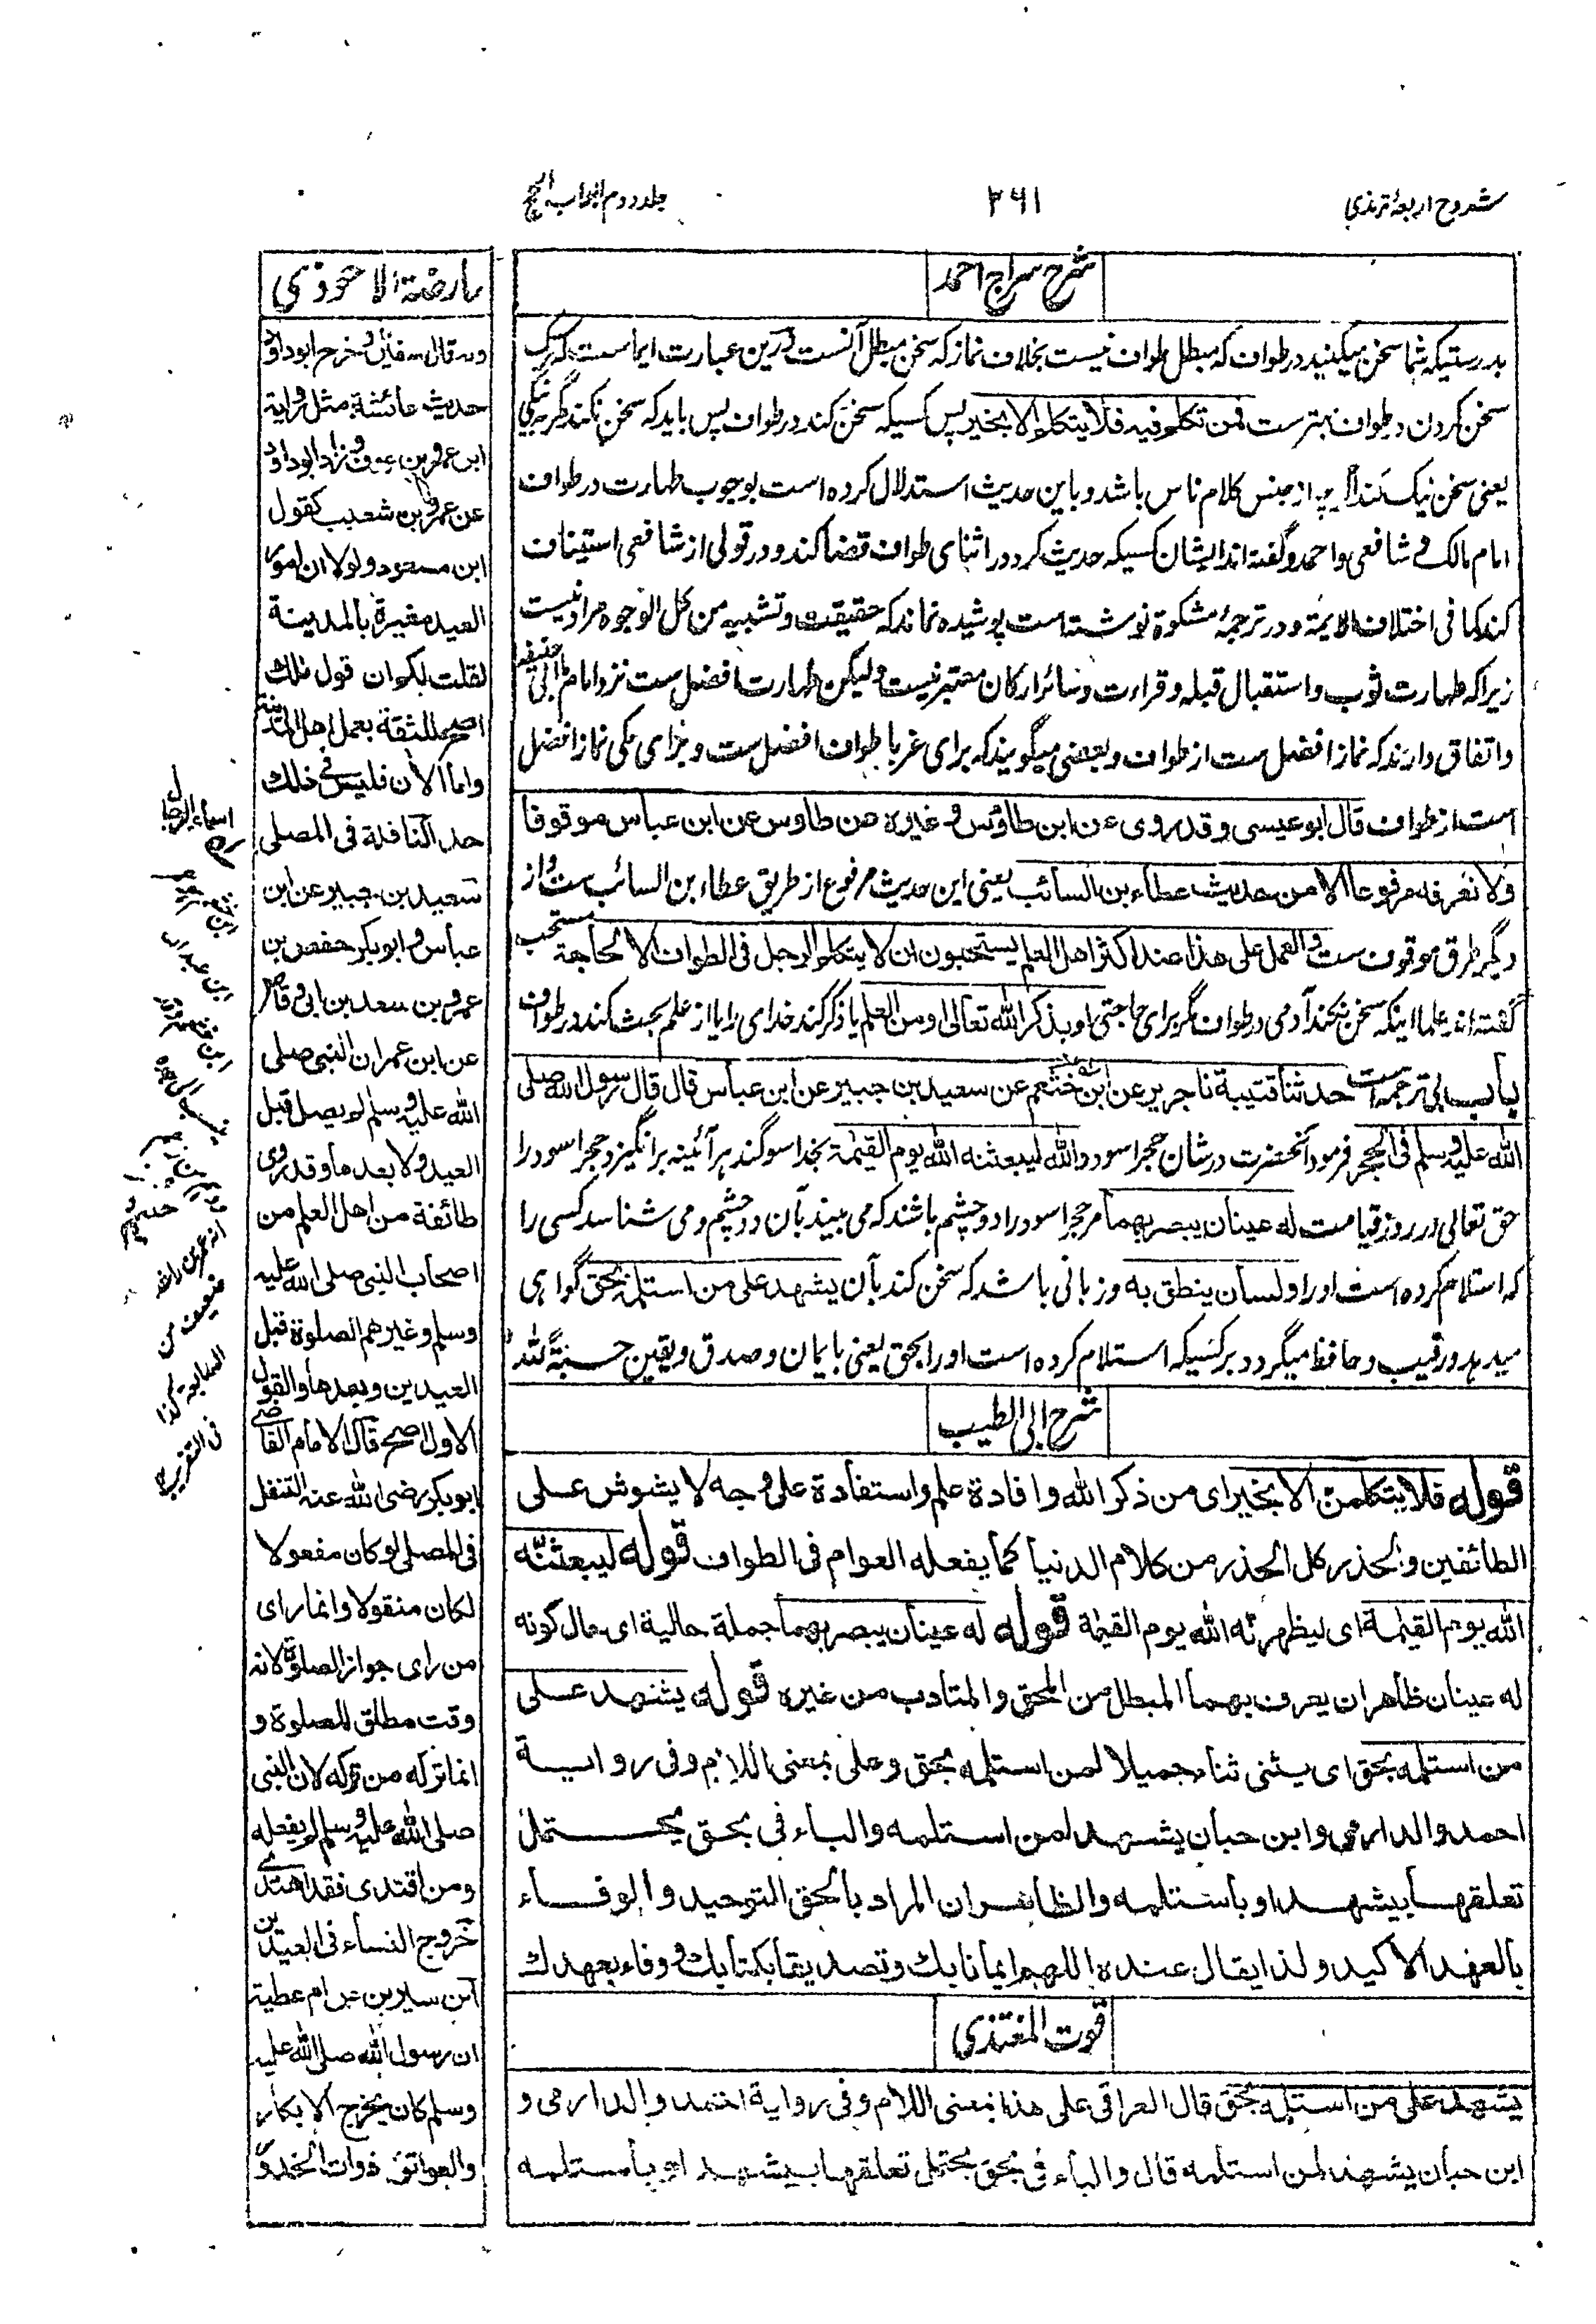 شروح اربعهٔ ترمذي
۳۹۱
جلد دوم ابواب الحج
شرح سراج احمد
بدرستیکه شما سخن میکنید در طواف که مبطل طواف نیست بخلاف نماز که سخن مبطل آنست درین عبارت ایما ست که ترک
سخن کردن در طواف بهتر ست فمن تکلم فیه فلا یتکلم الا بخیر پس کسیکه سخن کند در طواف پس باید که سخن نکند مگر به نیکی
یعنی سخن نیک کند اگرچه از جنس کلام ناس باشد و باین حدیث استدلال کرده است بوجوب طهارت در طواف
امام مالک و شافعی و احمد و گفته اند ایشان کسیکه حدیث کرد در اثنای طواف قضا کند و در قولی از شافعی استیناف
کند کما فی اختلاف الایمة و در ترجمهٔ مشکوة نوشته است پوشیده نماند که حقیقت و تشبیه من کل الوجوه مراد نیست
زیرا که طهارت ثوب و استقبال قبله و قراءت و سائر ارکان معتبر نیست ولیکن طهارت افضل ست نزد امام ابی حنیفه
و اتفاق دارند که نماز افضل ست از طواف و بعضی میگویند که برای غربا طواف افضل ست و برای مکی نماز افضل
است از طواف قال ابو عیسی و قد روی عن ابن طاؤس و غیره عن طاوس عن ابن عباس موقوفا
ولا نعرفه مرفوعا الا من حدیث عطاء بن السائب یعنی این حدیث مرفوع از طریق عطاء بن السائب ست و از
دیگر طرق موقوف ست والعمل علی هذا عند اکثر اهل العلم یستحبون ان لا یتکلم الرجل فی الطواف الا لحاجة مستحب
گفته اند علما اینکه سخن نکند آدمی در طواف مگر برای حاجتی او بذکر الله تعالی او من العلم یا ذکر کند خدای را یا از علم بحث کند در طواف
باب بی ترجمه است حدثنا قتیبة نا جریر عن ابن خثیم عن سعید بن جبیر عن ابن عباس قال قال رسول الله صلی
الله علیه وسلم فی الحجر فرمود آنحضرت در شان حجر اسود والله لیبعثنه الله یوم القیمة بخدا سوگند هر آئینه برانگیزد حجر اسود را
حق تعالی در روز قیامت له عینان یبصر بهما مر حجر اسود را دو چشم باشند که می بیند بآن دو چشم و می شناسد کسی را
که استلام کرده است او را ولسان ینطق به و زبانی باشد که سخن کند بآن یشهد علی من استلمه بحق گواهی
میدهد و رقیب و حافظ میگردد بر کسیکه استلام کرده است او را بحق یعنی بایمان و صدق و یقین حسبةً لله
شرح ابی الطیب
قوله فلا یتکلمن الا بخیر ای من ذکر الله وافادة علم واستفادة علی وجه لا یشوش علی
الطائفین والحذر کل الحذر من کلام الدنیا کما یفعله العوام فی الطواف قوله لیبعثنّه
الله یوم القیٰمة ای لیظهرنه الله یوم القیٰمة قوله له عینان یبصر بهما جملة حالیة ای حال کونه
له عینان ظاهران یعرف بهما المبطل من المحق والمتادب من غیره قوله یشهد علی
من استلمه بحق ای یثنی ثناء جمیلا لمن استلمه بحق وعلی بمعنی اللام وفی روایة
احمد والدارمی وابن حبان یشهد لمن استلمه والباء فی بحق یحتمل
تعلقها بیشهد او باستلمه والظاهر ان المراد بالحق التوحید والوفاء
بالعهد الاکید ولذا یقال عنده اللهم ایمانا بک وتصدیقا بکتابک ووفاء بعهدک
قوت المغتذی
یشهد علی من استلمه بحق قال العراقی علی هذا بمعنی اللام وفی روایة احمد والدارمی و
ابن حبان یشهد لمن استلمه قال والباء فی بحق یحتمل تعلقها بیشهد او باستلمه
عارضة الاحوذي
وبه قال سفیان وخرج ابو داؤد
حدیث عائشة مثل روایة
ابن عمرو بن عوف وزاد ابو داؤد
عن عمرو بن شعیب کقول
ابن مسعود ولولا ان امور
العید مغیرة بالمدینة
لقلت لکم ان قول مالک
اصح للثقة بعمل اهل المدینة
واما الآن فلیس فی ذلک
حد النافلة فی المصلی
سعید بن جبیر عن ابن
عباس وابو بکر حفص بن
عمرو بن سعد بن ابی وقاص
عن ابن عمر ان النبی صلی
الله علیه وسلم لم یصل قبل
العید ولا بعدها وقد روی
طائفة من اهل العلم من
اصحاب النبی صلی الله علیه
وسلم وغیرهم الصلوة قبل
العیدین وبعدها والقول
الاول اصح قال الامام القاضی
ابو بکر رضی الله عنه التنفل
فی المصلی لو کان مفعولا
لکان منقولا وانما رای
من رای جواز الصلوة لانه
وقت مطلق للصلوة و
انما ترکه من ترکه لان النبی
صلی الله علیه وسلم لم یفعله
ومن اقتدی فقد اهتدی
خروج النساء فی العیدین
ابن سیرین عن ام عطیة
ان رسول الله صلی الله علیه
وسلم کان یخرج الابکار
والعواتق ذوات الخدور
اسماء الرجال
ضعیف من
السابعة کذا
فی التقریب